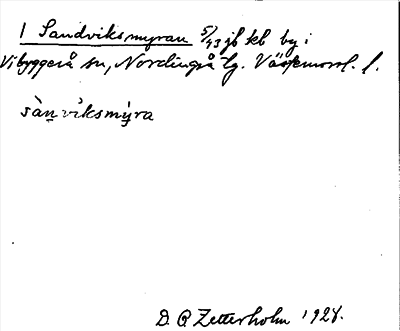 1 Sandviksmyran 5/43 jb kb by i
Vibyggerå sn, Nordingrå tg. Västernorrl. l.
sàn̲víksmy̲ra
D. O Zetterholm 1928.